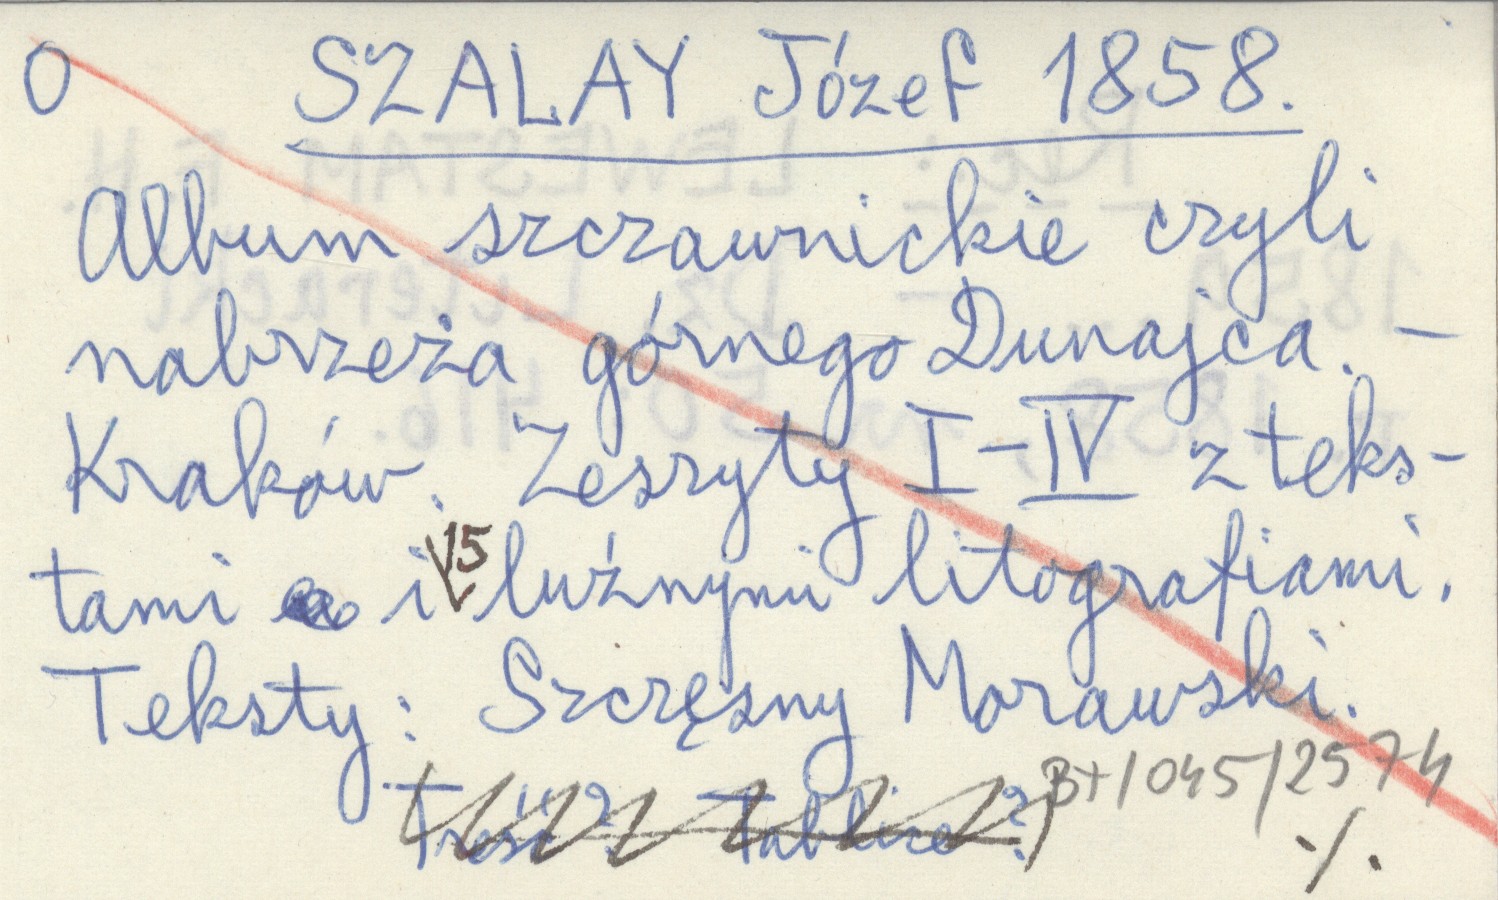 O SZALAY Józef 1858.
Album szczawnickie czyli
nabrzeża górnego Dunajca. –
Kraków. Zeszyty I–IV z teks-
tami i 15 luźnymi litografiami.
Teksty: Szczęsny Morawski.
Treść? Tablice?
B+/045/2574
./.